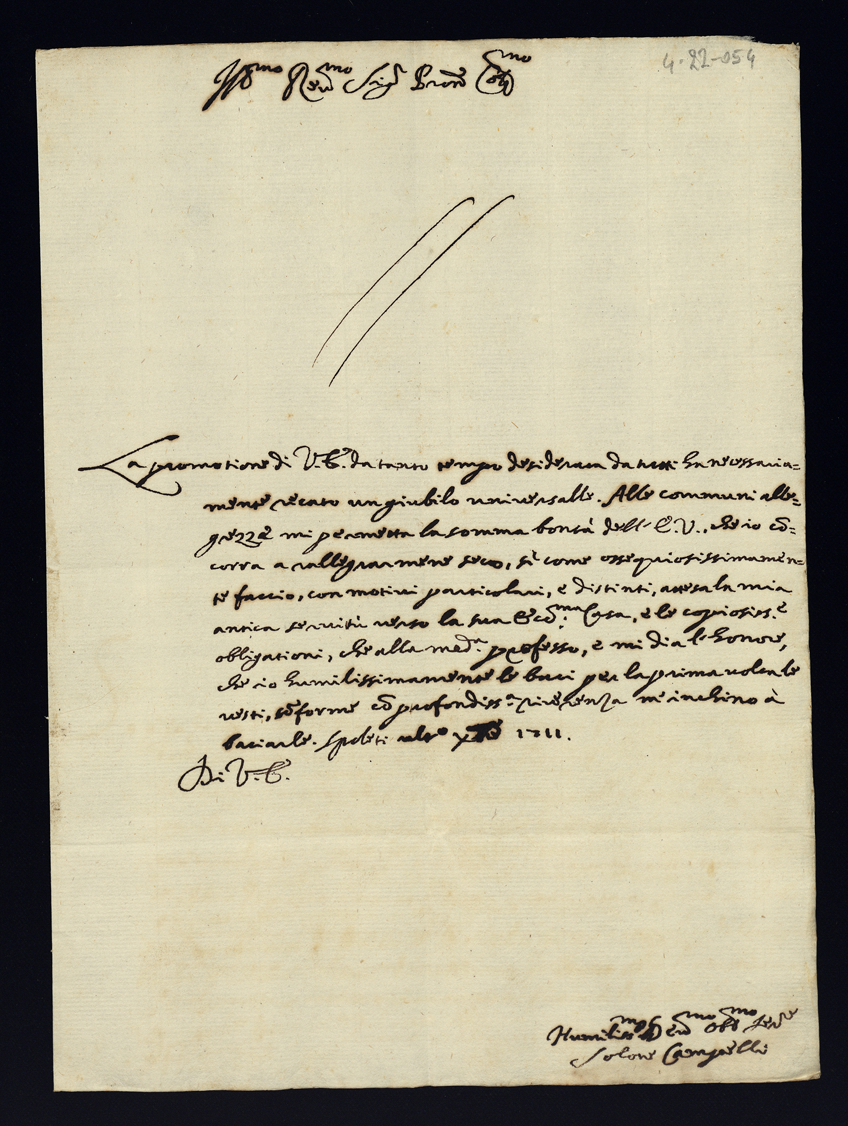 4-22-054
Ill.mo Rev.mo Sig.r Pron Col.mo
La promotione di V.E. da tanto tempo desiderata da tutti hà necessaria=
mente recato un giubilo universalle. Alle communi alle=
grezze mi permetta la somma bontà dell'E.V., che io cō=
corra a rallegrarmene seco, sì come ossequiosissimamen=
te faccio, con motivi particolari, e distinti, attesa la mia
antica servitù verso la sua Ecc.ma Casa, e le copiosiss.e
obligationi, che alla med.a professo, e mi dia l'honore,
che io humilissimamente le baci per la prima volta le
vesti, cōforme cō profondiss.a riverenza m'inchino à
baciarle. Spoleti ult.o 1711.
Di V.E.
Humiliss.mo Dev.mo Obl.mo Ser.re
Solone Campelli